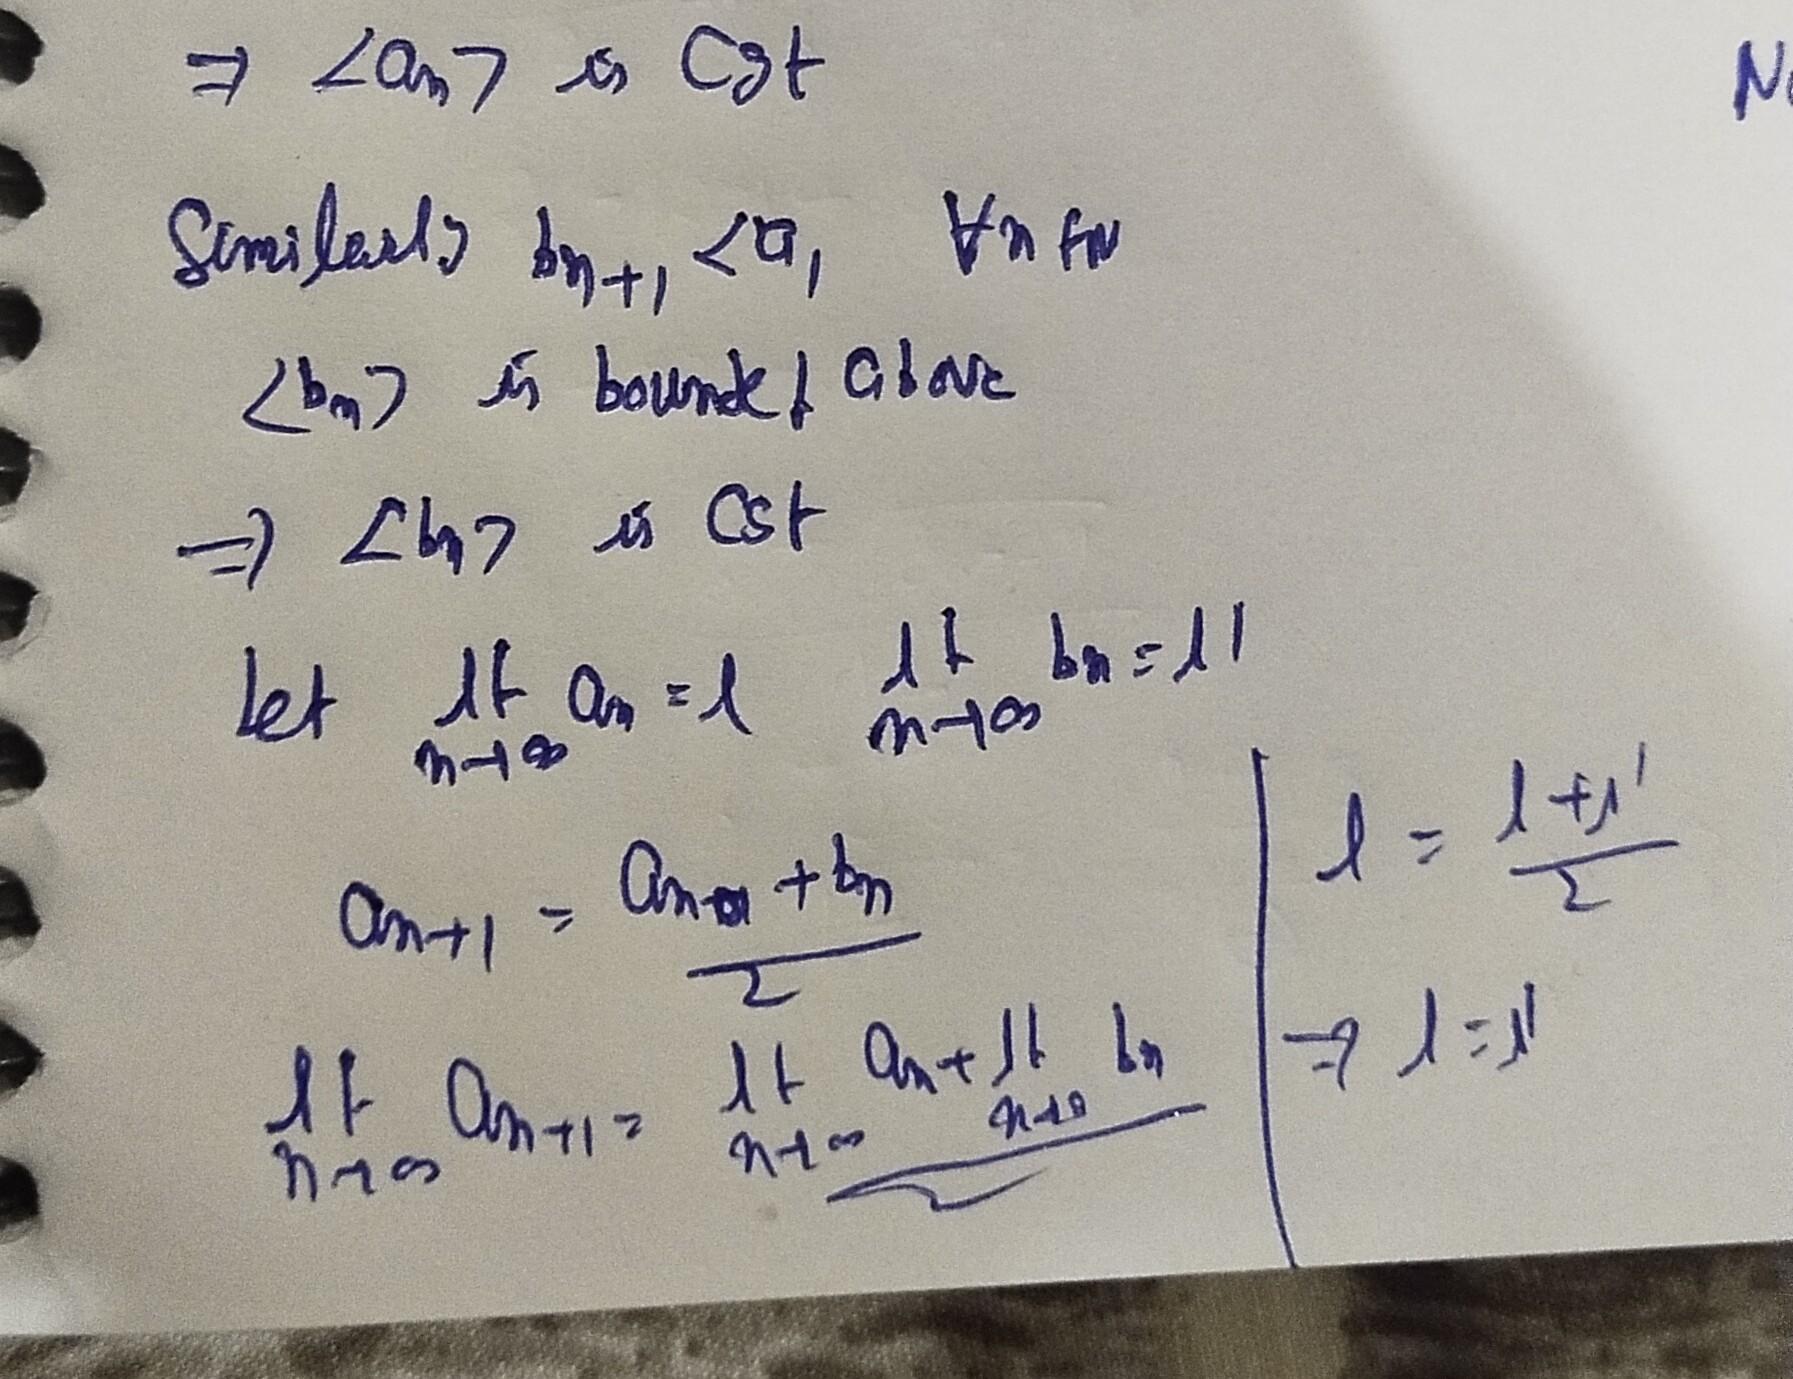 ⇒ <aₙ> is Cgt
Similarly bₙ₊₁ < a₁ ∀ n ∈ N
<bₙ> is bounded above
⇒ <bₙ> is Cgt
Let lt n→∞ aₙ = l lt n→∞ bₙ = l'
aₙ₊₁ = (aₙ + bₙ)/2
lt n→∞ aₙ₊₁ = (lt n→∞ aₙ + lt n→∞ bₙ)/2
l = (l + l')/2
⇒ l = l'